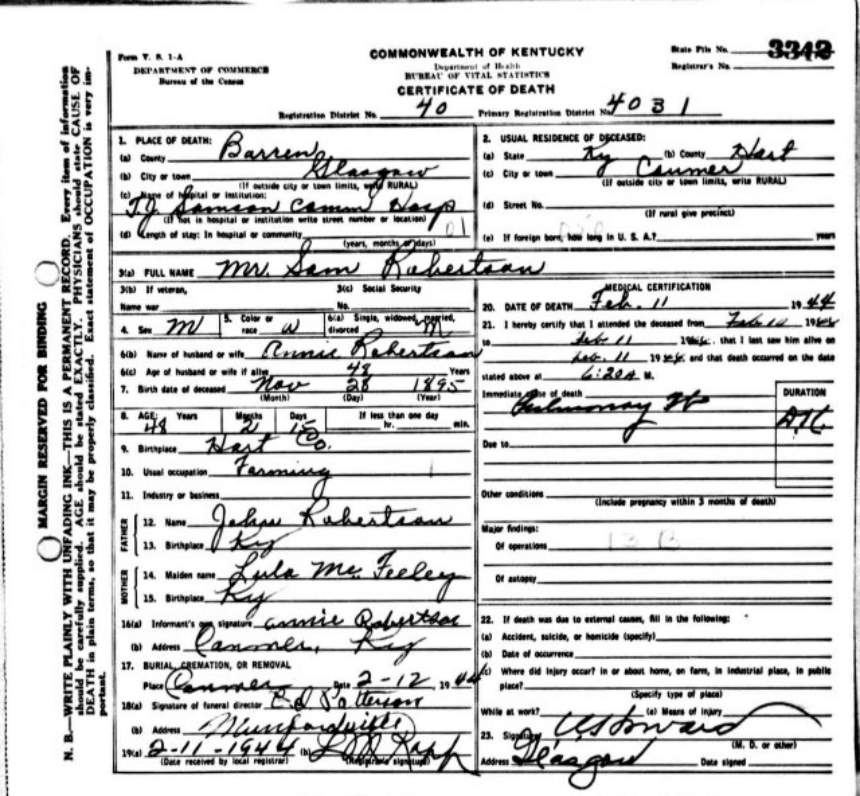 Form V. S. 1-A
DEPARTMENT OF COMMERCE
Bureau of the Census
COMMONWEALTH OF KENTUCKY
Department of Health
BUREAU OF VITAL STATISTICS
CERTIFICATE OF DEATH
State File No. 3342
Registrar's No.
Registration District No. 40 Primary Registration District No. 4031
MARGIN RESERVED FOR BINDING
N. B.—WRITE PLAINLY WITH UNFADING INK—THIS IS A PERMANENT RECORD. Every item of information
should be carefully supplied. AGE should be stated EXACTLY. PHYSICIANS should state CAUSE OF
DEATH in plain terms, so that it may be properly classified. Exact statement of OCCUPATION is very im-
portant.
1. PLACE OF DEATH:
(a) County Barren
(b) City or town Glasgow
(If outside city or town limits, write RURAL)
(c) Name of hospital or institution:
T.J. Samson Comm Hosp
(If not in hospital or institution write street number or location)
(d) Length of stay: In hospital or community
(years, months or days)
2. USUAL RESIDENCE OF DECEASED:
(a) State Ky (b) County Hart
(c) City or town Canmer
(If outside city or town limits, write RURAL)
(d) Street No.
(If rural give precinct)
(e) If foreign born, how long in U. S. A.? years
3(a) FULL NAME Mr. Sam Robertson
3(b) If veteran, 3(c) Social Security
Name war No.
4. Sex M 5. Color or race W 6(a) Single, widowed, married, divorced M
6(b) Name of husband or wife Annie Robertson
6(c) Age of husband or wife if alive 48 Years
7. Birth date of deceased Nov 28 1895
(Month) (Day) (Year)
8. AGE: Years Months Days If less than one day
48 2 15 hr. min.
9. Birthplace Hart Co.
10. Usual occupation Farming
11. Industry or business
FATHER
12. Name John Robertson
13. Birthplace Ky
MOTHER
14. Maiden name Lula Mc Feeley
15. Birthplace Ky
16(a) Informant's own signature Annie Robertson
(b) Address Canmer, Ky
17. BURIAL, CREMATION, OR REMOVAL
Place Canmer Date 2-12 1944
18(a) Signature of funeral director Patterson
(b) Address Munfordville
19(a) 2-11-1944 (b) Rapp
(Date received by local registrar) (Registrar's signature)
MEDICAL CERTIFICATION
20. DATE OF DEATH Feb. 11 1944
21. I hereby certify that I attended the deceased from Feb 1944
to Feb 11 1944, that I last saw him alive on
Feb. 11 1944 and that death occurred on the date
stated above at 6:20 A M.
Immediate cause of death DURATION
Pulmonary
Due to
Other conditions
(Include pregnancy within 3 months of death)
Major findings:
Of operations
Of autopsy
22. If death was due to external causes, fill in the following:
(a) Accident, suicide, or homicide (specify)
(b) Date of occurrence
(c) Where did injury occur? in or about home, on farm, in industrial place, in public
place?
(Specify type of place)
While at work? (e) Means of injury
23. Signature Howard
(M. D. or other)
Address Glasgow Date signed